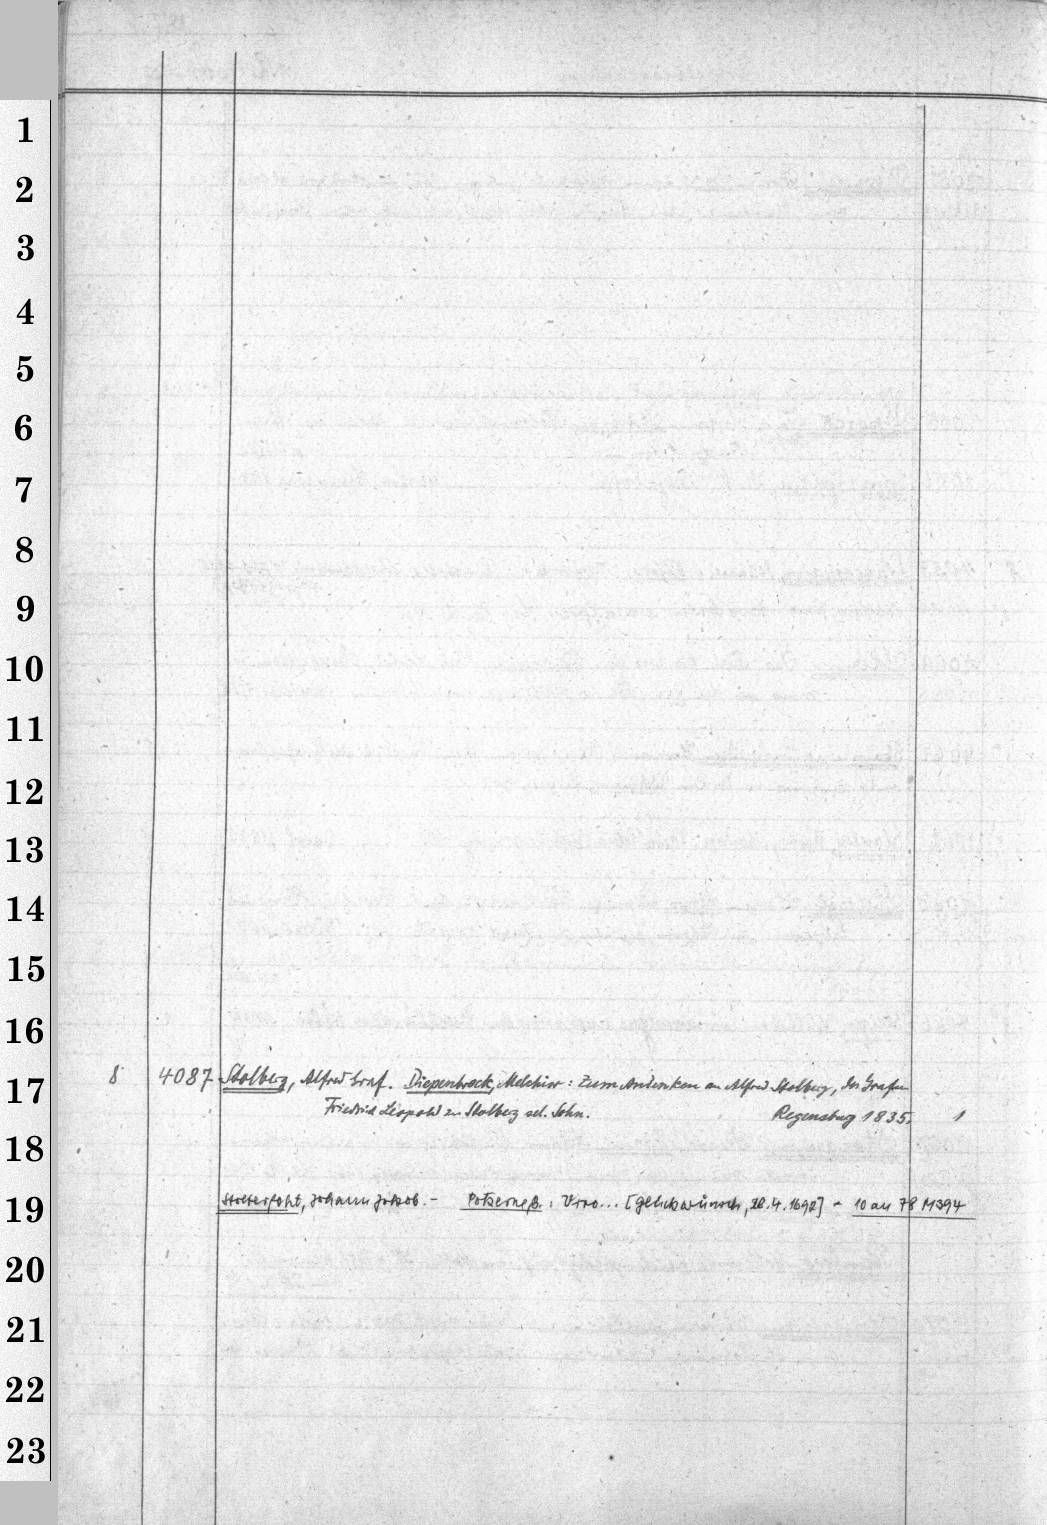 1
2
3
4
5
6
7
8
9
10
11
12
13
14
15
16
17
18
19
20
21
22
23
8 4087 Stolberg, Alfred Graf. Diepenbrock, Melchior: Zum Andenken an Alfred Stolberg, des Grafen
Friedrich Leopold zu Stolberg sel. Sohn. Regensburg 1835. 1
Johann Jakob. – : [Glückwunsch, .4.1692] – 10 an 78 M 394